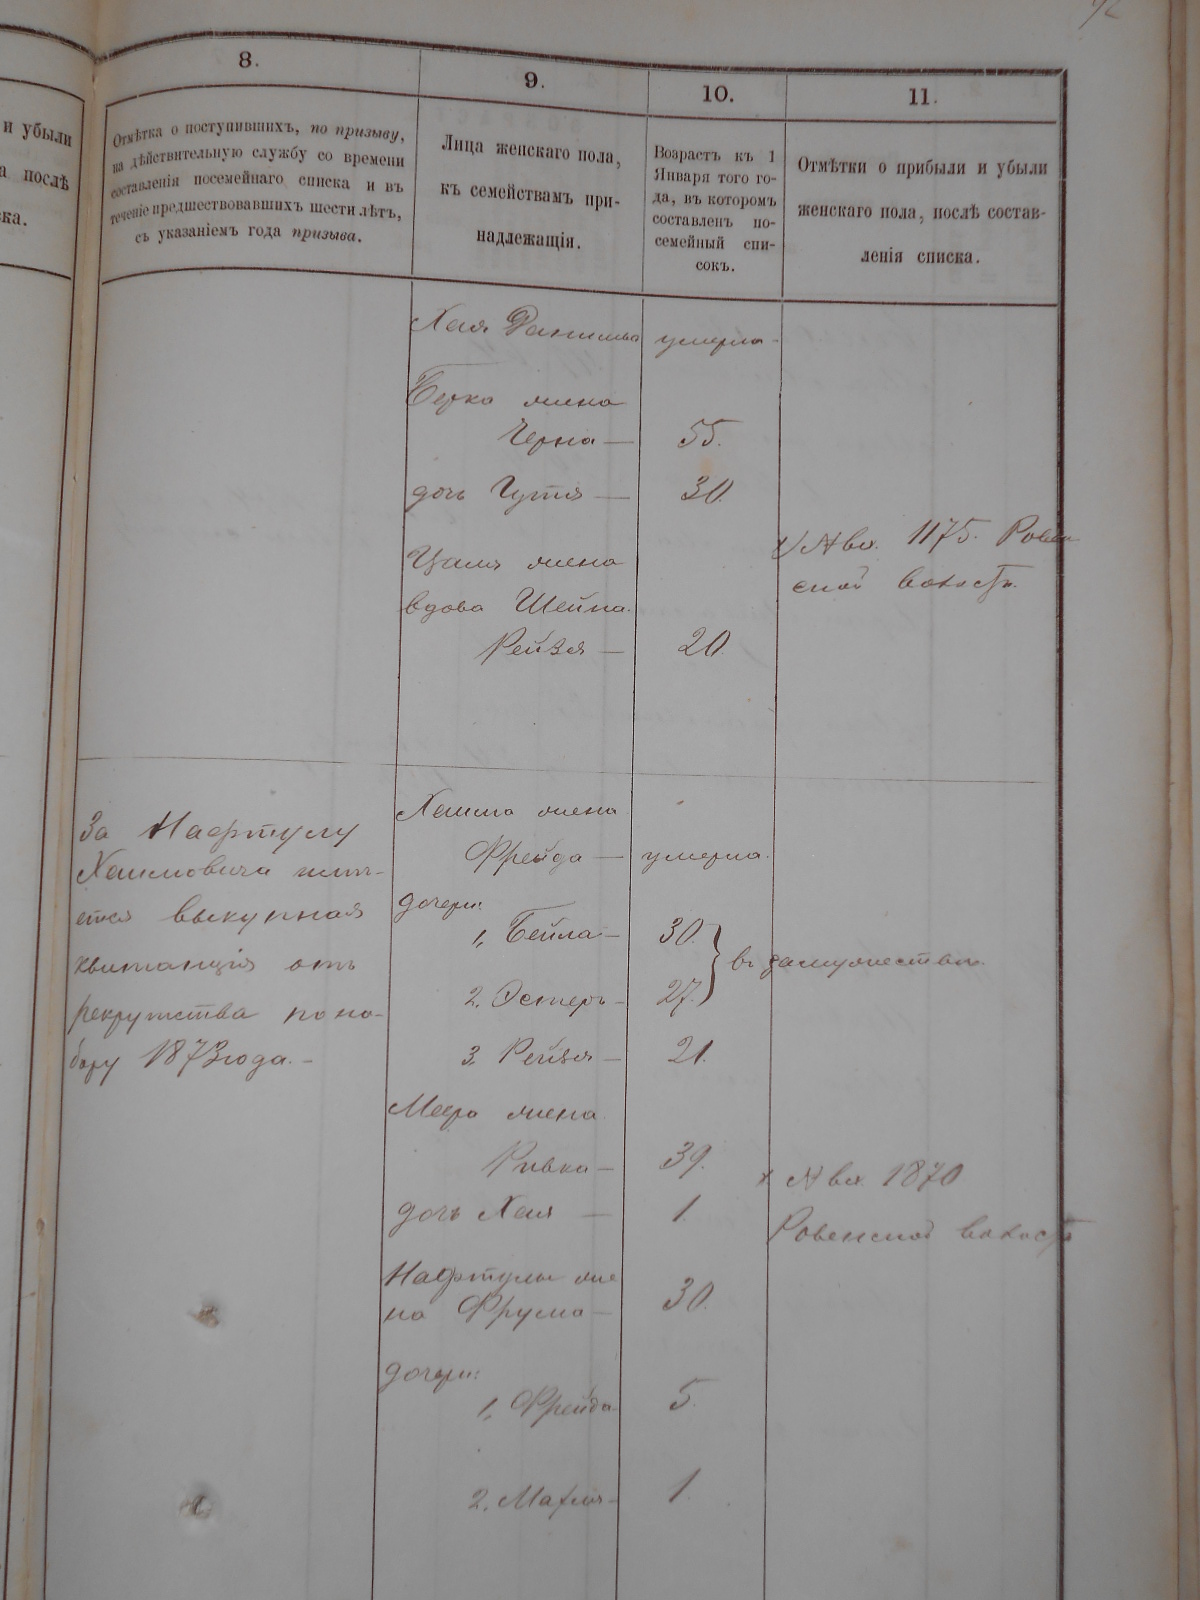 и убыли
а послѣ
ска.
8.
9.
10.
11.
Отмѣтка о поступившихъ, по призыву,
на дѣйствительную службу со времени
составленія посемейнаго списка и въ
теченіе предшествовавшихъ шести лѣтъ,
съ указаніемъ года призыва.
Лица женскаго пола,
къ семействамъ при-
надлежащія.
Возрастъ къ 1
Января того го-
да, въ которомъ
составленъ по-
семейный спи-
сокъ.
Отмѣтки о прибыли и убыли
женскаго пола, послѣ состав-
ленія списка.
Хая умерла
Берка жена
Черна — 55.
дочь Гутя — 30.
жена
вдова Шейна
Рейзя — 20.
1175.
ской волости
За Нафтулу
Хаимовича
выкупная
квитанція отъ
рекрутства по на-
бору 1873 года. —
Хаима жена
Фрейда — умерла.
дочери:
1, Бейла — 30.
2. Эстеръ — 27. } въ замужествѣ.
3, Рейзя — 21.
Меера жена
Ривка — 39.
дочь Хая — 1.
1870
Ровенской волости
Нафтулы же
на Фрума — 30.
дочери:
1, Фрейда 5.
2. Махля — 1.